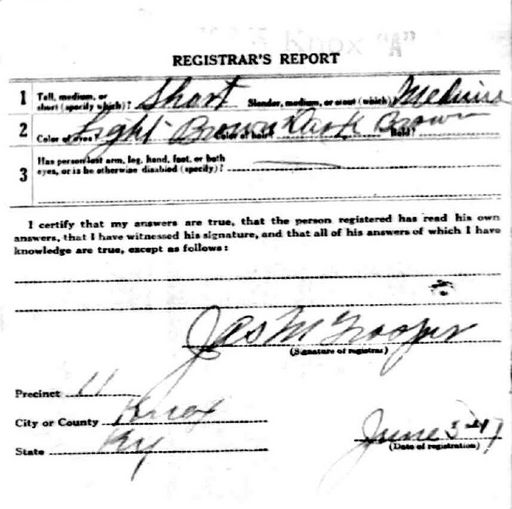 Knox "A"
REGISTRAR'S REPORT
1 Tall, medium, or short (specify which)? Short Slender, medium, or stout (which)? Medium
2 Color of eyes? Light Brown Color of hair? Dark Brown Bald?
3 Has person lost arm, leg, hand, foot, or both
eyes, or is he otherwise disabled (specify)?
I certify that my answers are true, that the person registered has read his own
answers, that I have witnessed his signature, and that all of his answers of which I have
knowledge are true, except as follows:
Jas M
(Signature of registrar)
Precinct 11
City or County Knox
State Ky
June 5
(Date of registration)